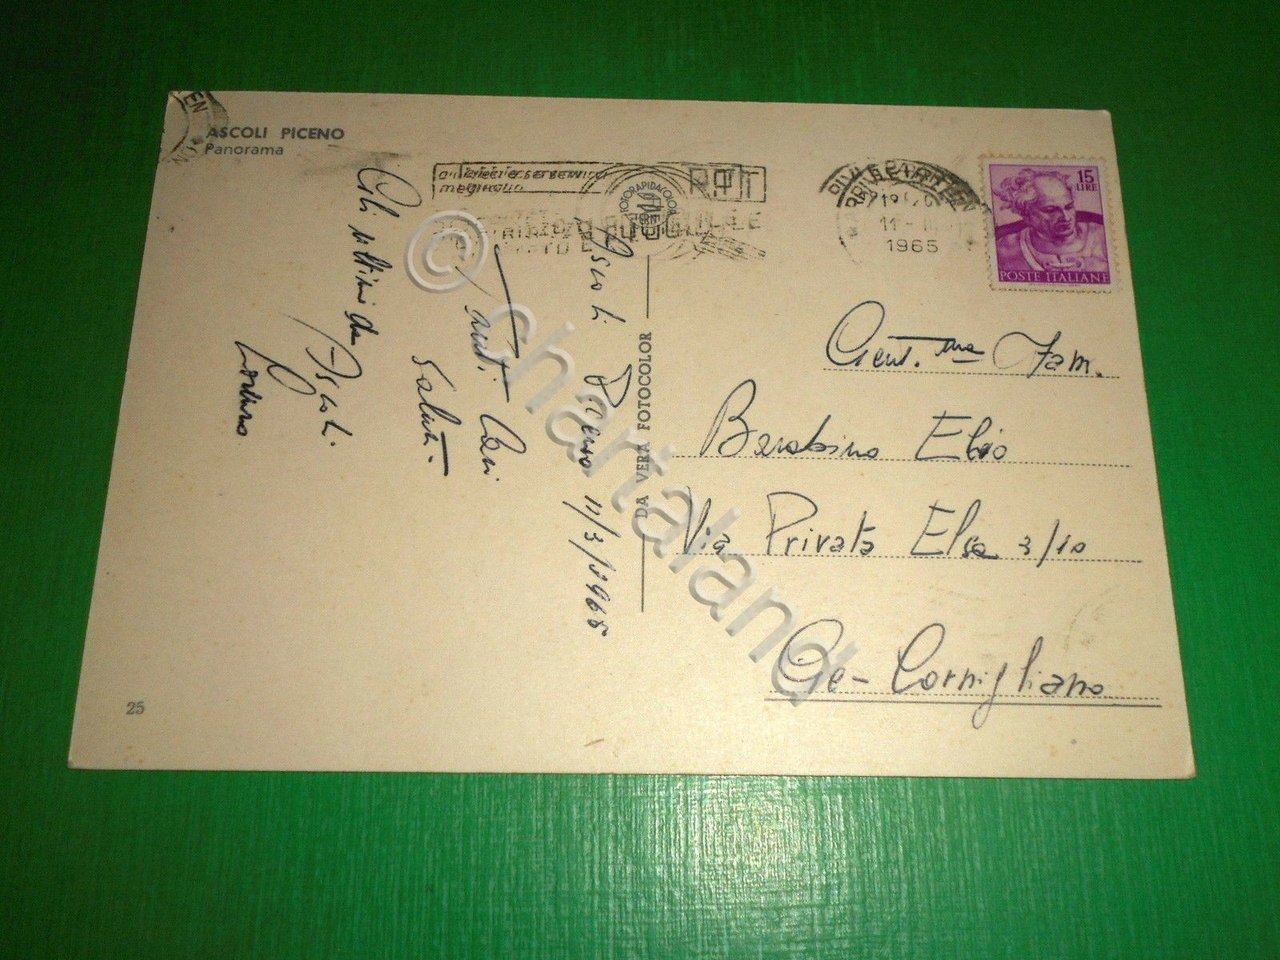 ASCOLI PICENO
Panorama
15
LIRE
POSTE ITALIANE
11-
1965
FOTORAPIDACOLOR
TERNI
DA VERA FOTOCOLOR
Ascoli Piceno 11/3/1965
Tanti Cari
Saluti.
Gli ultimi da
Ascoli
Gent.ma Fam.
Barabino Elio
Via Privata Elsa 3/10
Ge-Cornigliano
25
© chartaland